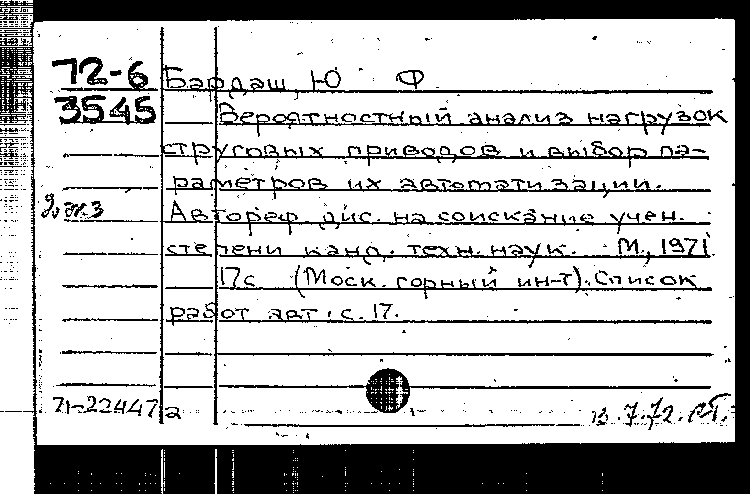 72-6 Бардаш, Ю Ф
3545 Вероятностный анализ нагрузок
струговых приводов и выбор па-
раметров их автоматизации.
Автореф. дис. на соискание учен.
степени канд. техн. наук. М., 1971
17с (Моск. горный ин-т). Список
работ авт: с. 17.
71-22447 а 13.7.72.